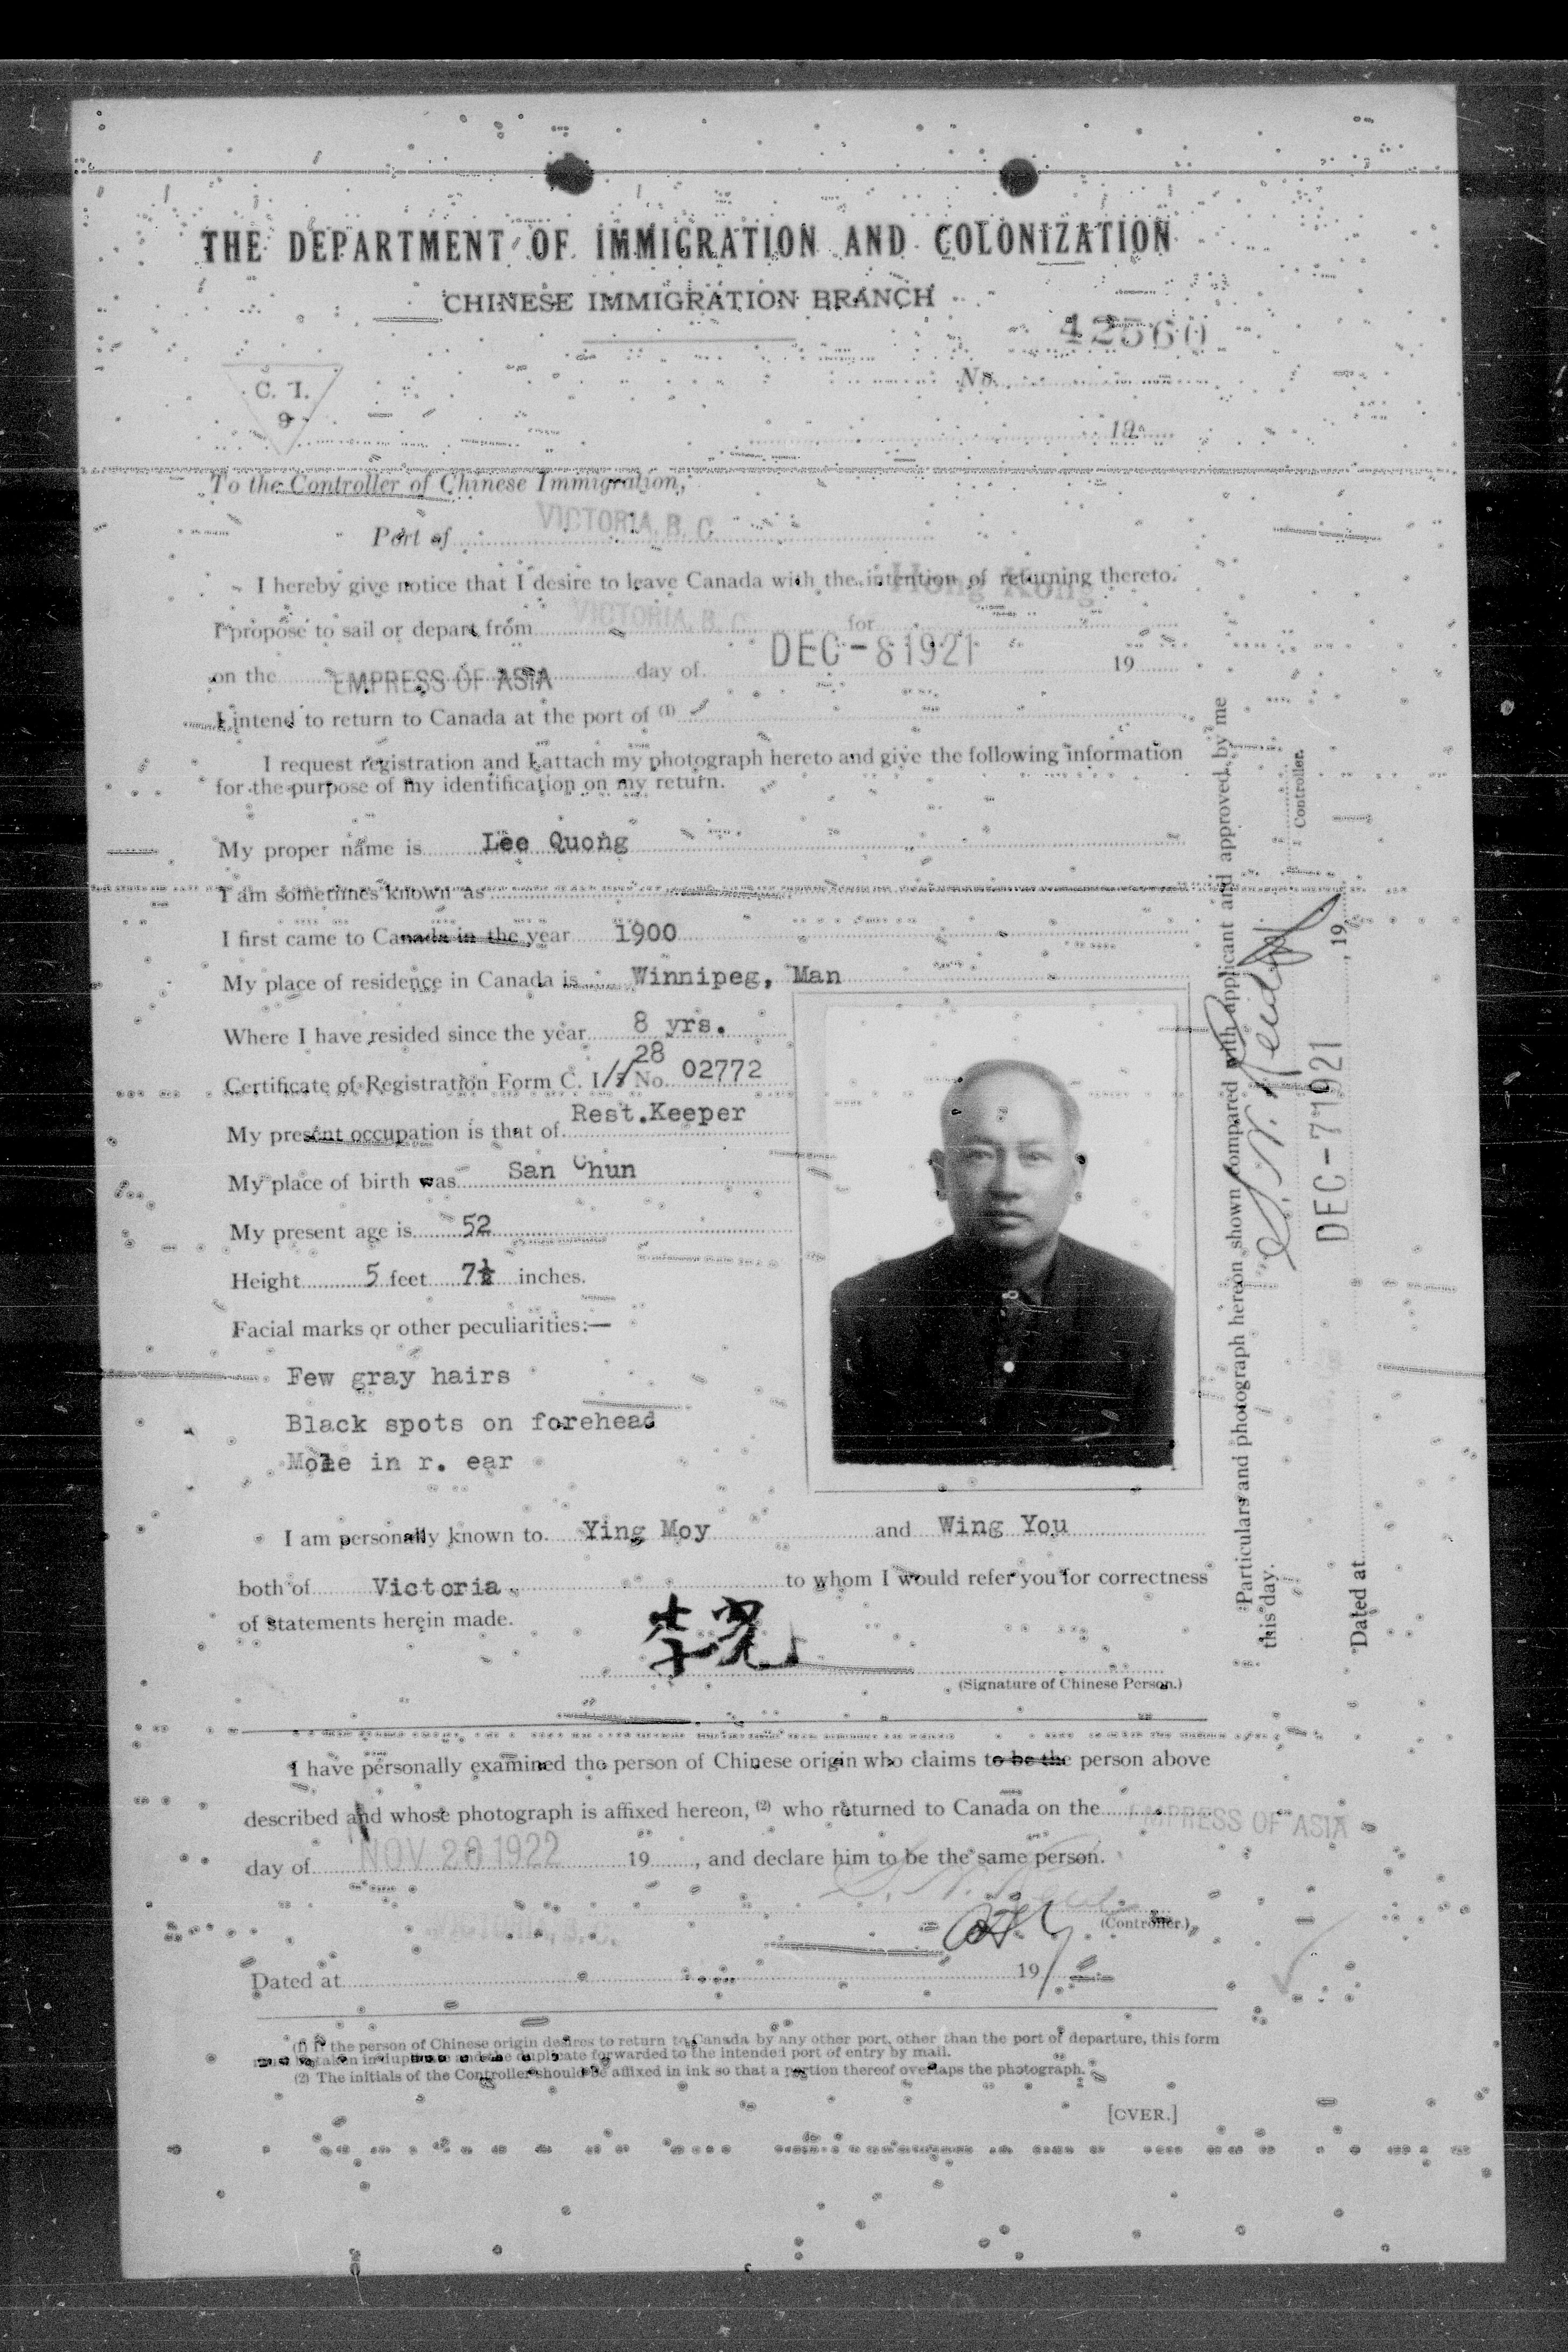 THE DEPARTMENT OF IMMIGRATION AND COLONIZATION
CHINESE IMMIGRATION BRANCH
42560
No.
C. I.
9
19
To the Controller of Chinese Immigration,
Port of VICTORIA, B. C.
I hereby give notice that I desire to leave Canada with the intention of returning thereto.
Hong Kong
I propose to sail or depart from VICTORIA, B. C. for
on the EMPRESS OF ASIA day of DEC - 8 1921 19
I intend to return to Canada at the port of (1)
I request registration and I attach my photograph hereto and give the following information
for the purpose of my identification on my return.
My proper name is Lee Quong
I am sometimes known as
I first came to Canada in the year 1900
My place of residence in Canada is Winnipeg, Man
Where I have resided since the year 8 yrs.
28
Certificate of Registration Form C. I. No. 02772
My present occupation is that of Rest.Keeper
My place of birth was San Chun
My present age is 52
Height 5 feet 7½ inches.
Facial marks or other peculiarities:—
Few gray hairs
Black spots on forehead
Mole in r. ear
I am personally known to Ying Moy and Wing You
both of Victoria to whom I would refer you for correctness
of statements herein made.
李光
(Signature of Chinese Person.)
I have personally examined the person of Chinese origin who claims to be the person above
described and whose photograph is affixed hereon, (2) who returned to Canada on the EMPRESS OF ASIA
day of NOV 20 1922 19 , and declare him to be the same person.
VICTORIA, B. C.
(Controller.)
Dated at 19
(1) If the person of Chinese origin desires to return to Canada by any other port, other than the port of departure, this form
must be taken in duplicate and the duplicate forwarded to the intended port of entry by mail.
(2) The initials of the Controller should be affixed in ink so that a portion thereof overlaps the photograph.
[OVER.]
Particulars and photograph hereon shown compared with applicant and approved by me
this day.
Controller.
Dated at DEC - 7 1921 , 19